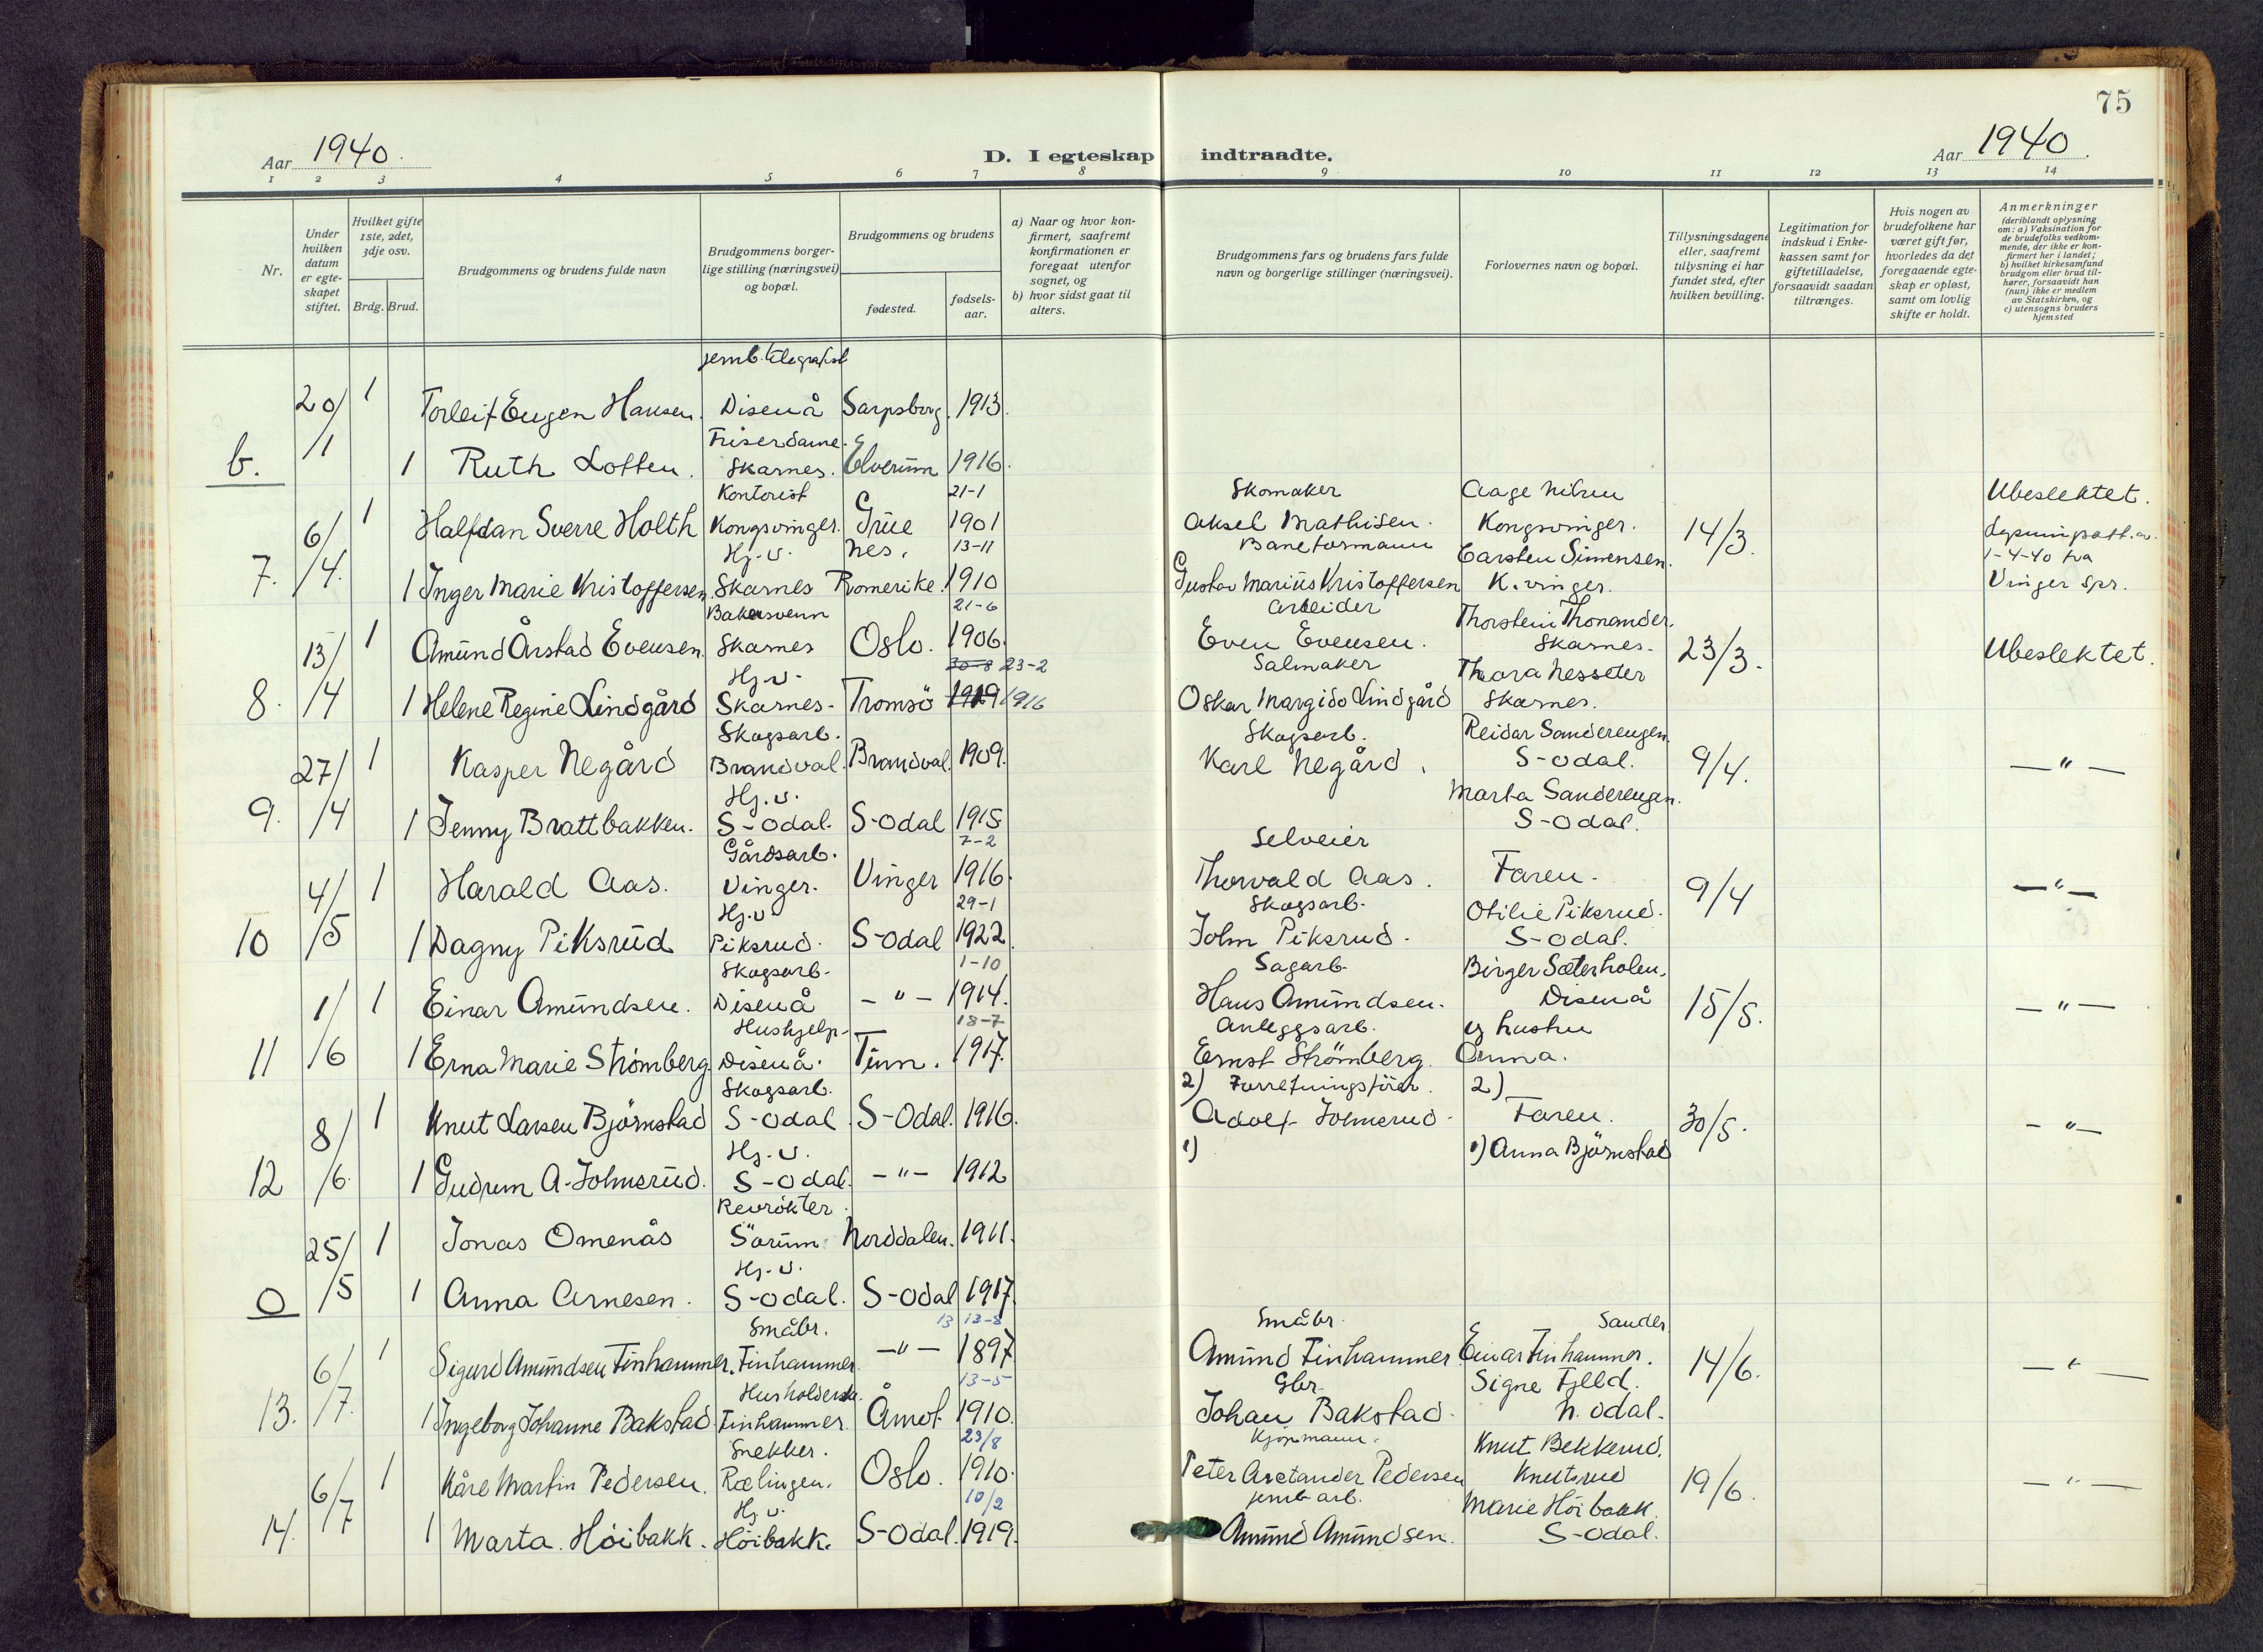 75
Aar 1940.
D. I egteskap indtraadte.
Aar 1940.
1 2 3 4 5 6 7 8 9 10 11 12 13 14
Nr.
Under hvilken datum er egteskapet stiftet.
Hvilket gifte 1ste, 2det, 3dje osv.
Brdg. Brud.
Brudgommens og brudens fulde navn
Brudgommens borgerlige stilling (næringsvei) og bopæl.
Brudgommens og brudens
fødested.
fødselsaar.
a) Naar og hvor konfirmert, saafremt konfirmationen er foregaat utenfor sognet, og
b) hvor sidst gaat til alters.
Brudgommens fars og brudens fars fulde navn og borgerlige stillinger (næringsvei).
Forlovernes navn og bopæl.
Tillysningsdagene eller, saafremt tillysning ei har fundet sted, efter hvilken bevilling.
Legitimation for indskud i Enkekassen samt for giftetilladelse, forsaavidt saadan tiltrænges.
Hvis nogen av brudefolkene har været gift før, hvorledes da det foregaaende egteskap er opløst, samt om lovlig skifte er holdt.
Anmerkninger (deriblandt oplysning om: a) Vaksination for de brudefolks vedkommende, der ikke er konfirmert her i landet; b) hvilket kirkesamfund brudgom eller brud tilhører, forsaavidt han (hun) ikke er medlem av Statskirken, og c) utensogns bruders hjemsted
jernb.telegrafist
20/1 1 Torleif Eugen Hansen. Disenå Sarpsborg. 1913.
Friserdame.
b. 1 Ruth Lotten. Skarnes. Elverum 1916.
Kontorist 21-1 Skomaker Aage Nilsen Ubeslektet.
6/4. 1 Halfdan Sverre Holth Kongsvinger. Grue 1901 Aksel Mathisen. Kongsvinger. 14/3.
Hj.v. Nes, 13-11 Baneformann Carsten Simensen. 1-4-40 fra
7. 1 Inger Marie Kristoffersen Skarnes Romerike. 1910 Gustav Marius Kristoffersen K.vinger. Vinger spr.
Bakersvenn 21-6 Arbeider Thorstein Thonander.
13/4 1 Amund Årstad Evensen. Skarnes Oslo. 1906. Even Evensen. Skarnes. 23/3. Ubeslektet.
Hj.v. 30-8 23-2 Salmaker Thora Nesseter
8. 1 Helene Regine Lindgård Skarnes- Tromsö 1919 1916 Oskar Margido Lindgård Skarnes.
Skogsarb. Skogsarb. Reidar Sanderengen.
27/4 1 Kasper Negård Brandval. Brandval. 1909. Karl Negård. S-Odal. 9/4. —"—
Hj.v. Marta Sanderengen.
9. 1 Jenny Brattbakken. S-Odal. S-Odal 1915 S-Odal.
Gårdsarb. 7-2 Selveier
4/5 1 Harald Aas. Vinger. Vinger 1916. Thorvald Aas. Faren. 9/4 —"—
Hj.v 29-1 Skogsarb. Otilie Piksrud.
10 1 Dagny Piksrud Piksrud. S-Odal 1922. John Piksrud. S-Odal.
Skogsarb- 1-10 Sagarb. Birger Sæterholen.
1/6 1 Einar Amundsen. Disenå -"- 1914. Hans Amundsen. Disenå 15/5. —"—
Hushjelp- 18-7 Anleggsarb. og hustru
11 1 Erna Marie Strömberg. Disenå. Tinn. 1917. Ernst Strömberg. Anna.
Skogsarb. 2) Forretningsförer. 2)
8/6 1 Knut Larsen Björnstad S-Odal. S-Odal. 1916. Adolf Johnsrud. Faren. 30/5. -"-
Hj.v. 1) 1) Anna Björnstad
12 1 Gudrun A. Johnsrud. S-Odal. -"- 1912
Revrökter.
25/5 1 Jonas Omenås Sörum Norddalen. 1911.
Hj.v.
0 1 Anna Arnesen. S-Odal. S-Odal 1917.
Småbr. 13 13-8 Småbr. Sander
6/7. 1 Sigurd Amundsen Finhammer. Finhammer. -"- 1897 Amund Finhammer. Einar Finhammer. 14/6. —"—
Husholderske. 13-5 Gbr. Signe Fjeld.
13. 1 Ingeborg Johanne Bakstad. Finhammer. Åmot 1910. Johan Bakstad. N.Odal.
Snekker. 23/8 Kjöpmann. Knut Bekkerud.
6/7 1 Kåre Martin Pedersen. Rælingen. Oslo. 1910. Peter Aretander Pedersen Knutsrud 19/6. —"—
Hj.v. 10/2 jernb.arb. Marie Höibakk.
14. 1 Marta Höibakk. Höibakk. S-Odal. 1919. Amund Amundsen. S-Odal.